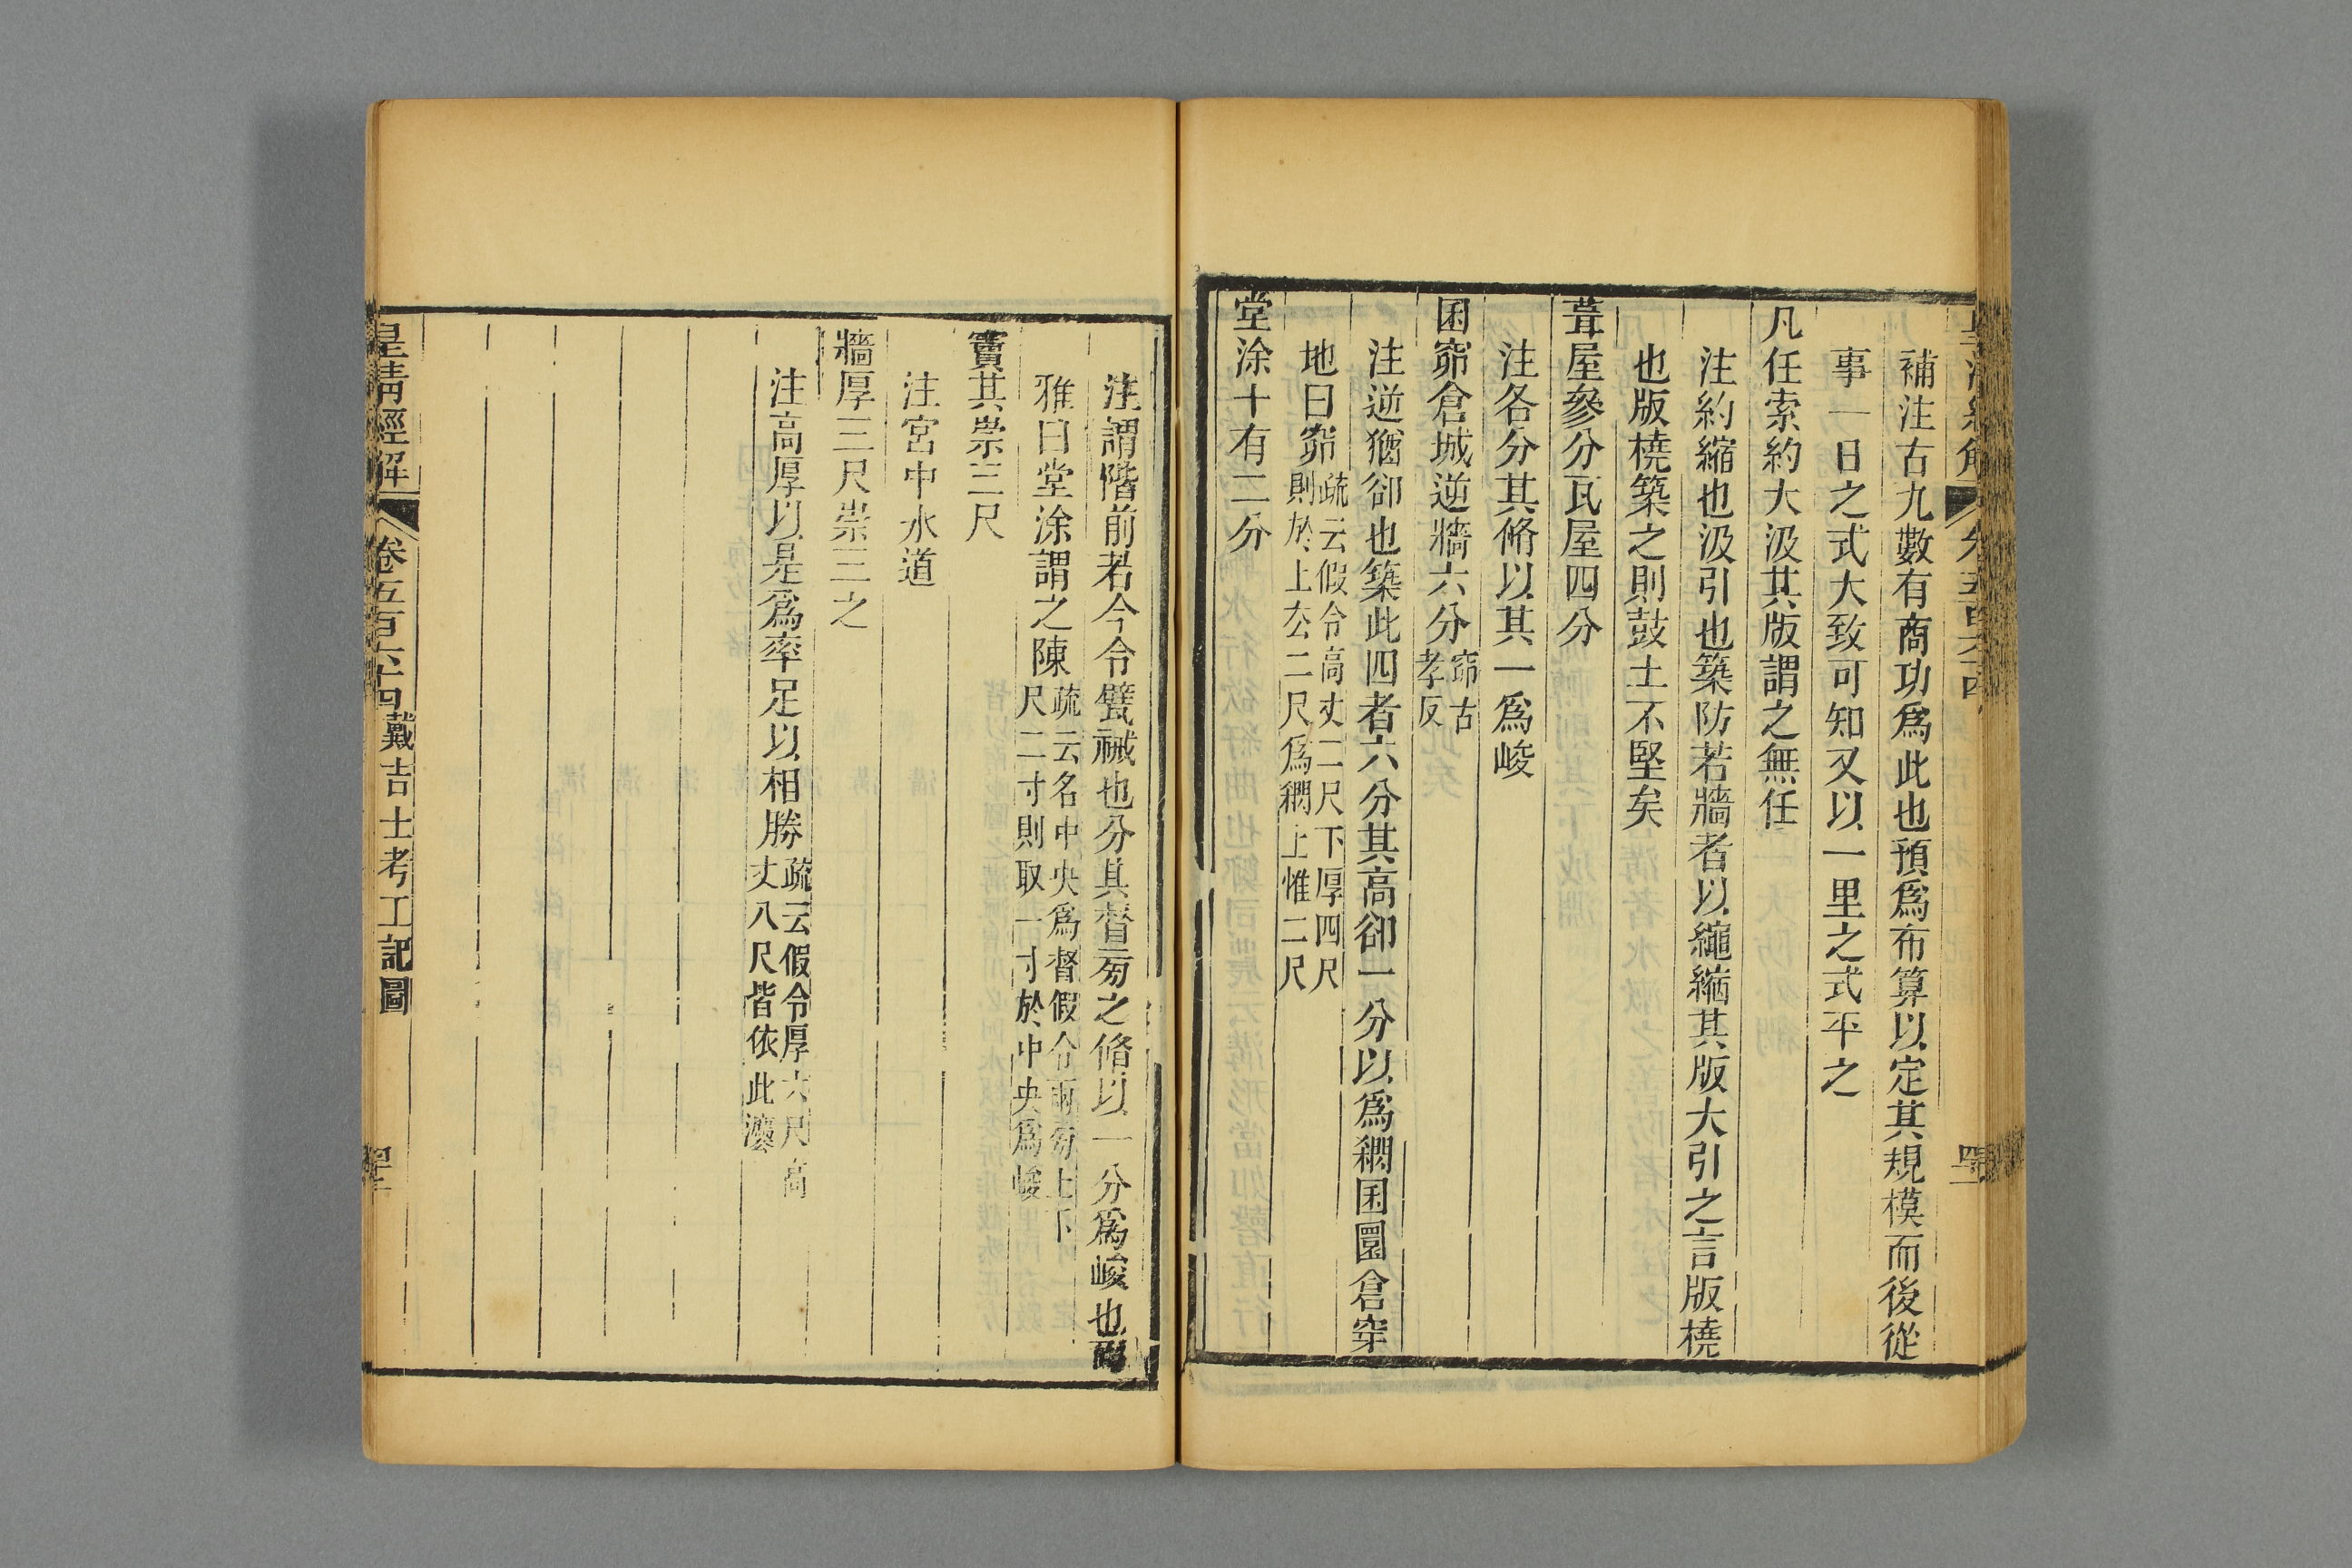 補注古九數有商功爲此也預爲布算以定其規模而後從
事一日之式大致可知又以一里之式平之
凡任索約大汲其版謂之無任
注約縮也汲引也築防若牆者以繩縮其版大引之言版橈
也版橈築之則鼓土不堅矣
葺屋參分瓦屋四分
注各分其脩以其一爲峻
囷窌倉城逆牆六分窌古孝反
注逆猶卻也築此四者六分其高卻一分以爲䊵囷圜倉穿
地曰窌疏云假令高丈二尺下厚四尺則於上厺二尺爲䊵上惟二尺
堂涂十有二分
注謂階前若今令甓裓也分其督㫄之脩以一分爲峻也爾
雅曰堂涂謂之陳疏云名中央爲督假令兩㫄上下尺二寸則取一寸於中央爲峻
竇其崇三尺
注宮中水道
牆厚三尺崇三之
注高厚以是爲率足以相勝疏云假令厚六尺高丈八尺皆依此灋
皇清經解 卷五百六十四 戴吉士考工記圖